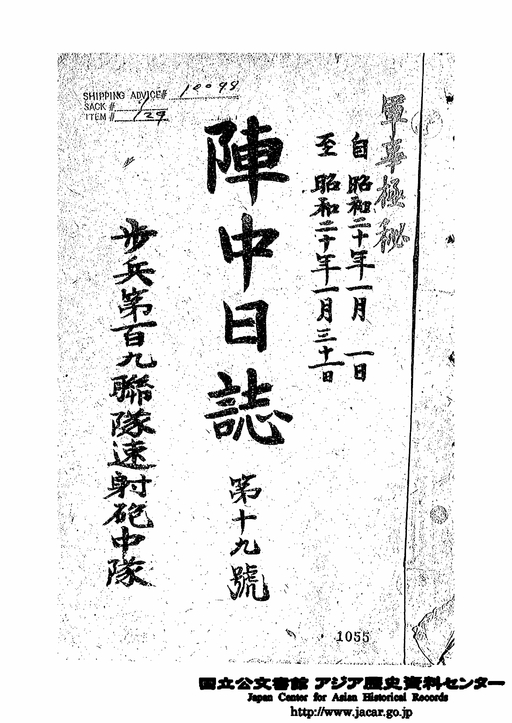 SHIPPING ADVICE# 10098
SACK # 1
ITEM # 129
軍事極秘
自 昭和二十年一月 一日
至 昭和二十年一月三十一日
陣中日誌 第十九號
歩兵第百九聯隊速射砲中隊
1055
国立公文書館 アジア歴史資料センター
Japan Center for Asian Historical Records
http://www.jacar.go.jp